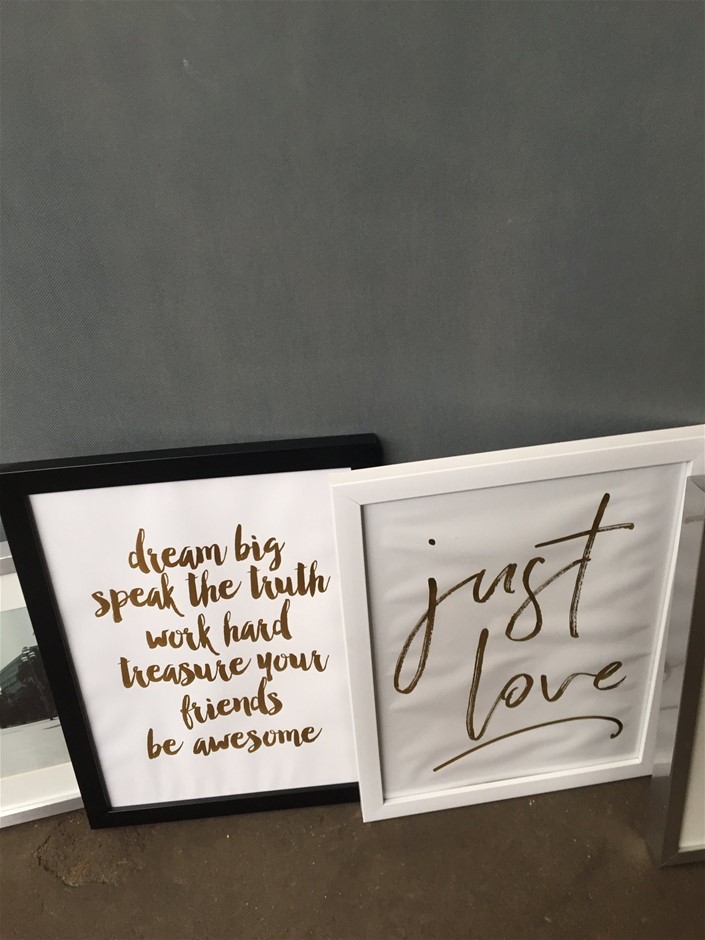 dream big
speak the truth
work hard
treasure your
friends
be awesome
just
love